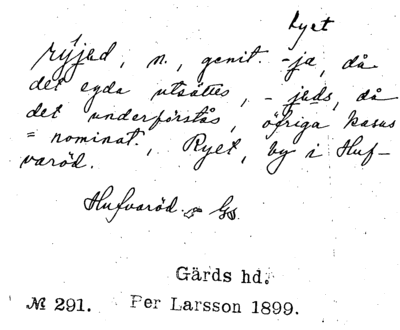 Ryet
rýjad, n., genit. -ja, då
det egda utsättes, -jads, då
det underförstås, öfriga kasus
= nominat., Ryet, by i Huf-
varöd.
Hufvaröd. Gs.
Gärds hd.
№ 291. Per Larsson 1899.